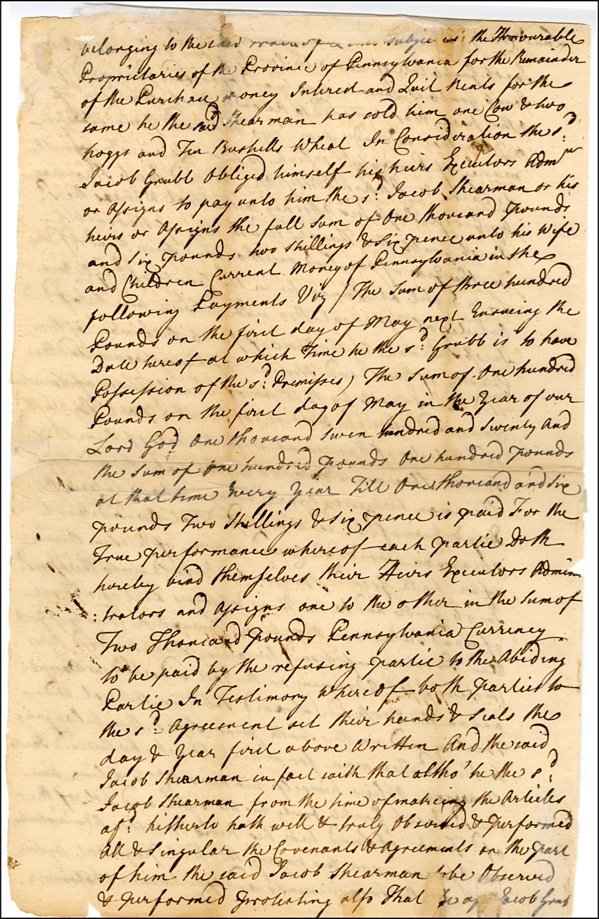 belonging to the said subject to the Honourable
Proprietaries of the Province of Pennsylvania for the Remainder
of the Purchase money Interest and Quit Rents for the
same he the sd. Shearman has sold him one Cow & two
hoggs and Ten Bushells Wheat In Consideration the sd.
Jacob Grubb Obliged himself his heirs Executors Admrs
or assigns to pay unto him the sd. Jacob Shearman or his
heirs or Assigns the full Sum of One thousand pounds
and Six pounds two shillings & Six pence unto his Wife
and Children Current Money of Pennsylvania in the
following Payments Viz / The Sum of three hundred
Pounds on the first day of May next Ensueing the
Date hereof at which Time he the sd. Grubb is to have
Possession of the sd. Premisses) The Sum of One hundred
Pounds on the first day of May in the Year of our
Lord God One thousand Seven hundred and Seventy And
the Sum of One hundred pounds One hundred pounds
at that time Every Year Till One thousand and Six
pounds Two Shillings & Six pence is paid For the
True performance whereof each partie Doth
hereby bind themselves their Heirs Executors Admin
:trators and Assigns one to the other in the Sum of
Two Thousand pounds Pennsylvania Currency
to be paid by the refusing partie to the Abiding
Partie In Testimony whereof both parties to
the sd. Agreement set their hands & Seals the
day & Year first above Written And the said
Jacob Shearman in fact saith that altho' he the sd.
Jacob Shearman from the time of making the Articles
afd. hitherto hath well & truly Observed & performed
all & Singular the Covenants & Agreements on the part
of him the said Jacob Shearman to be Observed
& performed protesting also That Jacob Grub